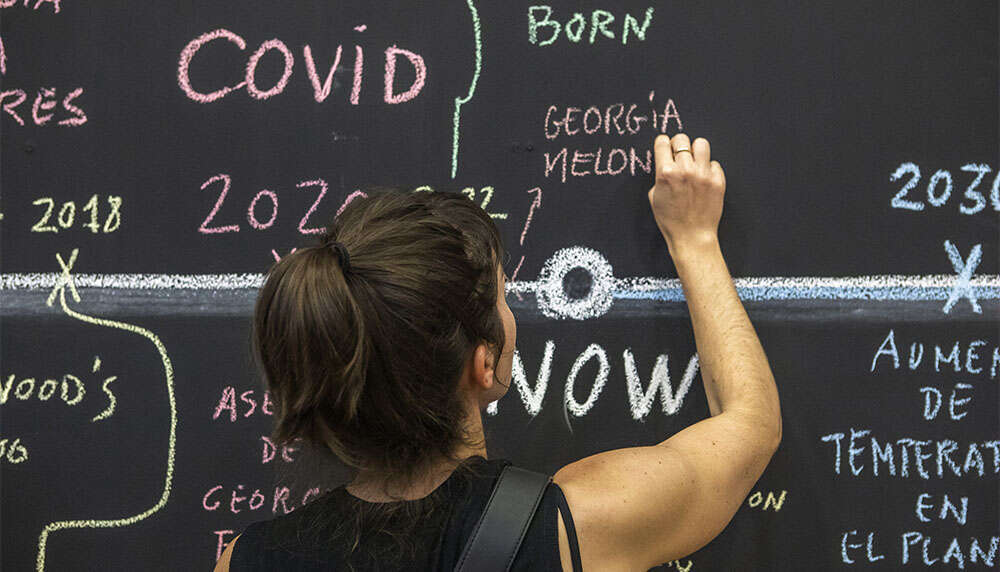 RES
COVID
BORN
GEORGIA
MELON
2018
2020
22
2030
NOW
WOOD'S
06
ASE
DE
GEORG
ON
AUMEN
DE
TEMPERAT
EN
EL PLAN